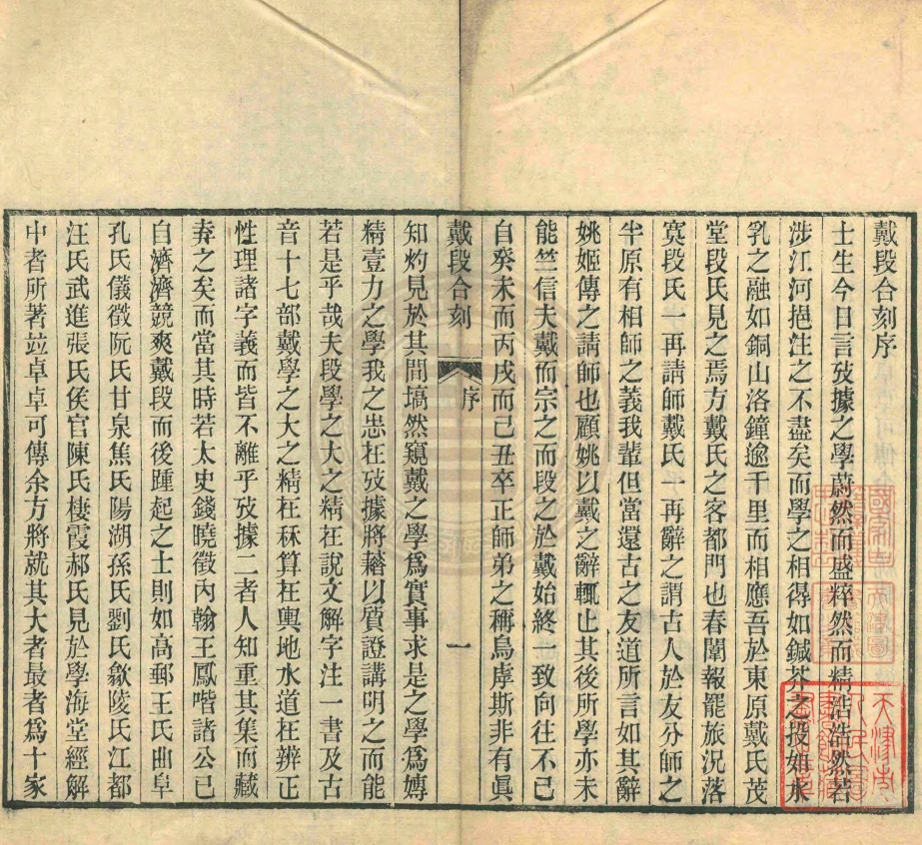 戴段合刻序
士生今日言攷據之學蔚然而盛粹然而精浩浩然若
涉江河挹注之不盡矣而學之相得如鍼芥之投如水
乳之融如銅山洛鐘邈千里而相應吾於東原戴氏茂
堂段氏見之焉方戴氏之客都門也春闈報罷旅況落
寞段氏一再請師戴氏一再辭之謂古人於友分師之
半原有相師之義我輩但當還古之友道所言如其辭
姚姬傳之請師也顧姚以戴之辭輒止其後所學亦未
能竺信夫戴而宗之而段之於戴始終一致向往不已
自癸未而丙戌而己丑卒正師弟之稱烏虖斯非有眞
戴段合刻 序 一
知灼見於其間塙然窺戴之學爲實事求是之學爲嫥
精壹力之學我之恉在攷據將藉以質證講明之而能
若是乎哉夫段學之大之精在說文解字注一書及古
音十七部戴學之大之精在秝算在輿地水道在辨正
性理諸字義而皆不離乎攷據二者人知重其集而藏
弆之矣而當其時若太史錢曉徵內翰王鳳喈諸公已
自濟濟競爽戴段而後踵起之士則如高郵王氏曲阜
孔氏儀徵阮氏甘泉焦氏陽湖孫氏劉氏歙淩氏江都
汪氏武進張氏侯官陳氏棲霞郝氏見於學海堂經解
中者所著竝卓卓可傳余方將就其大者最者爲十家